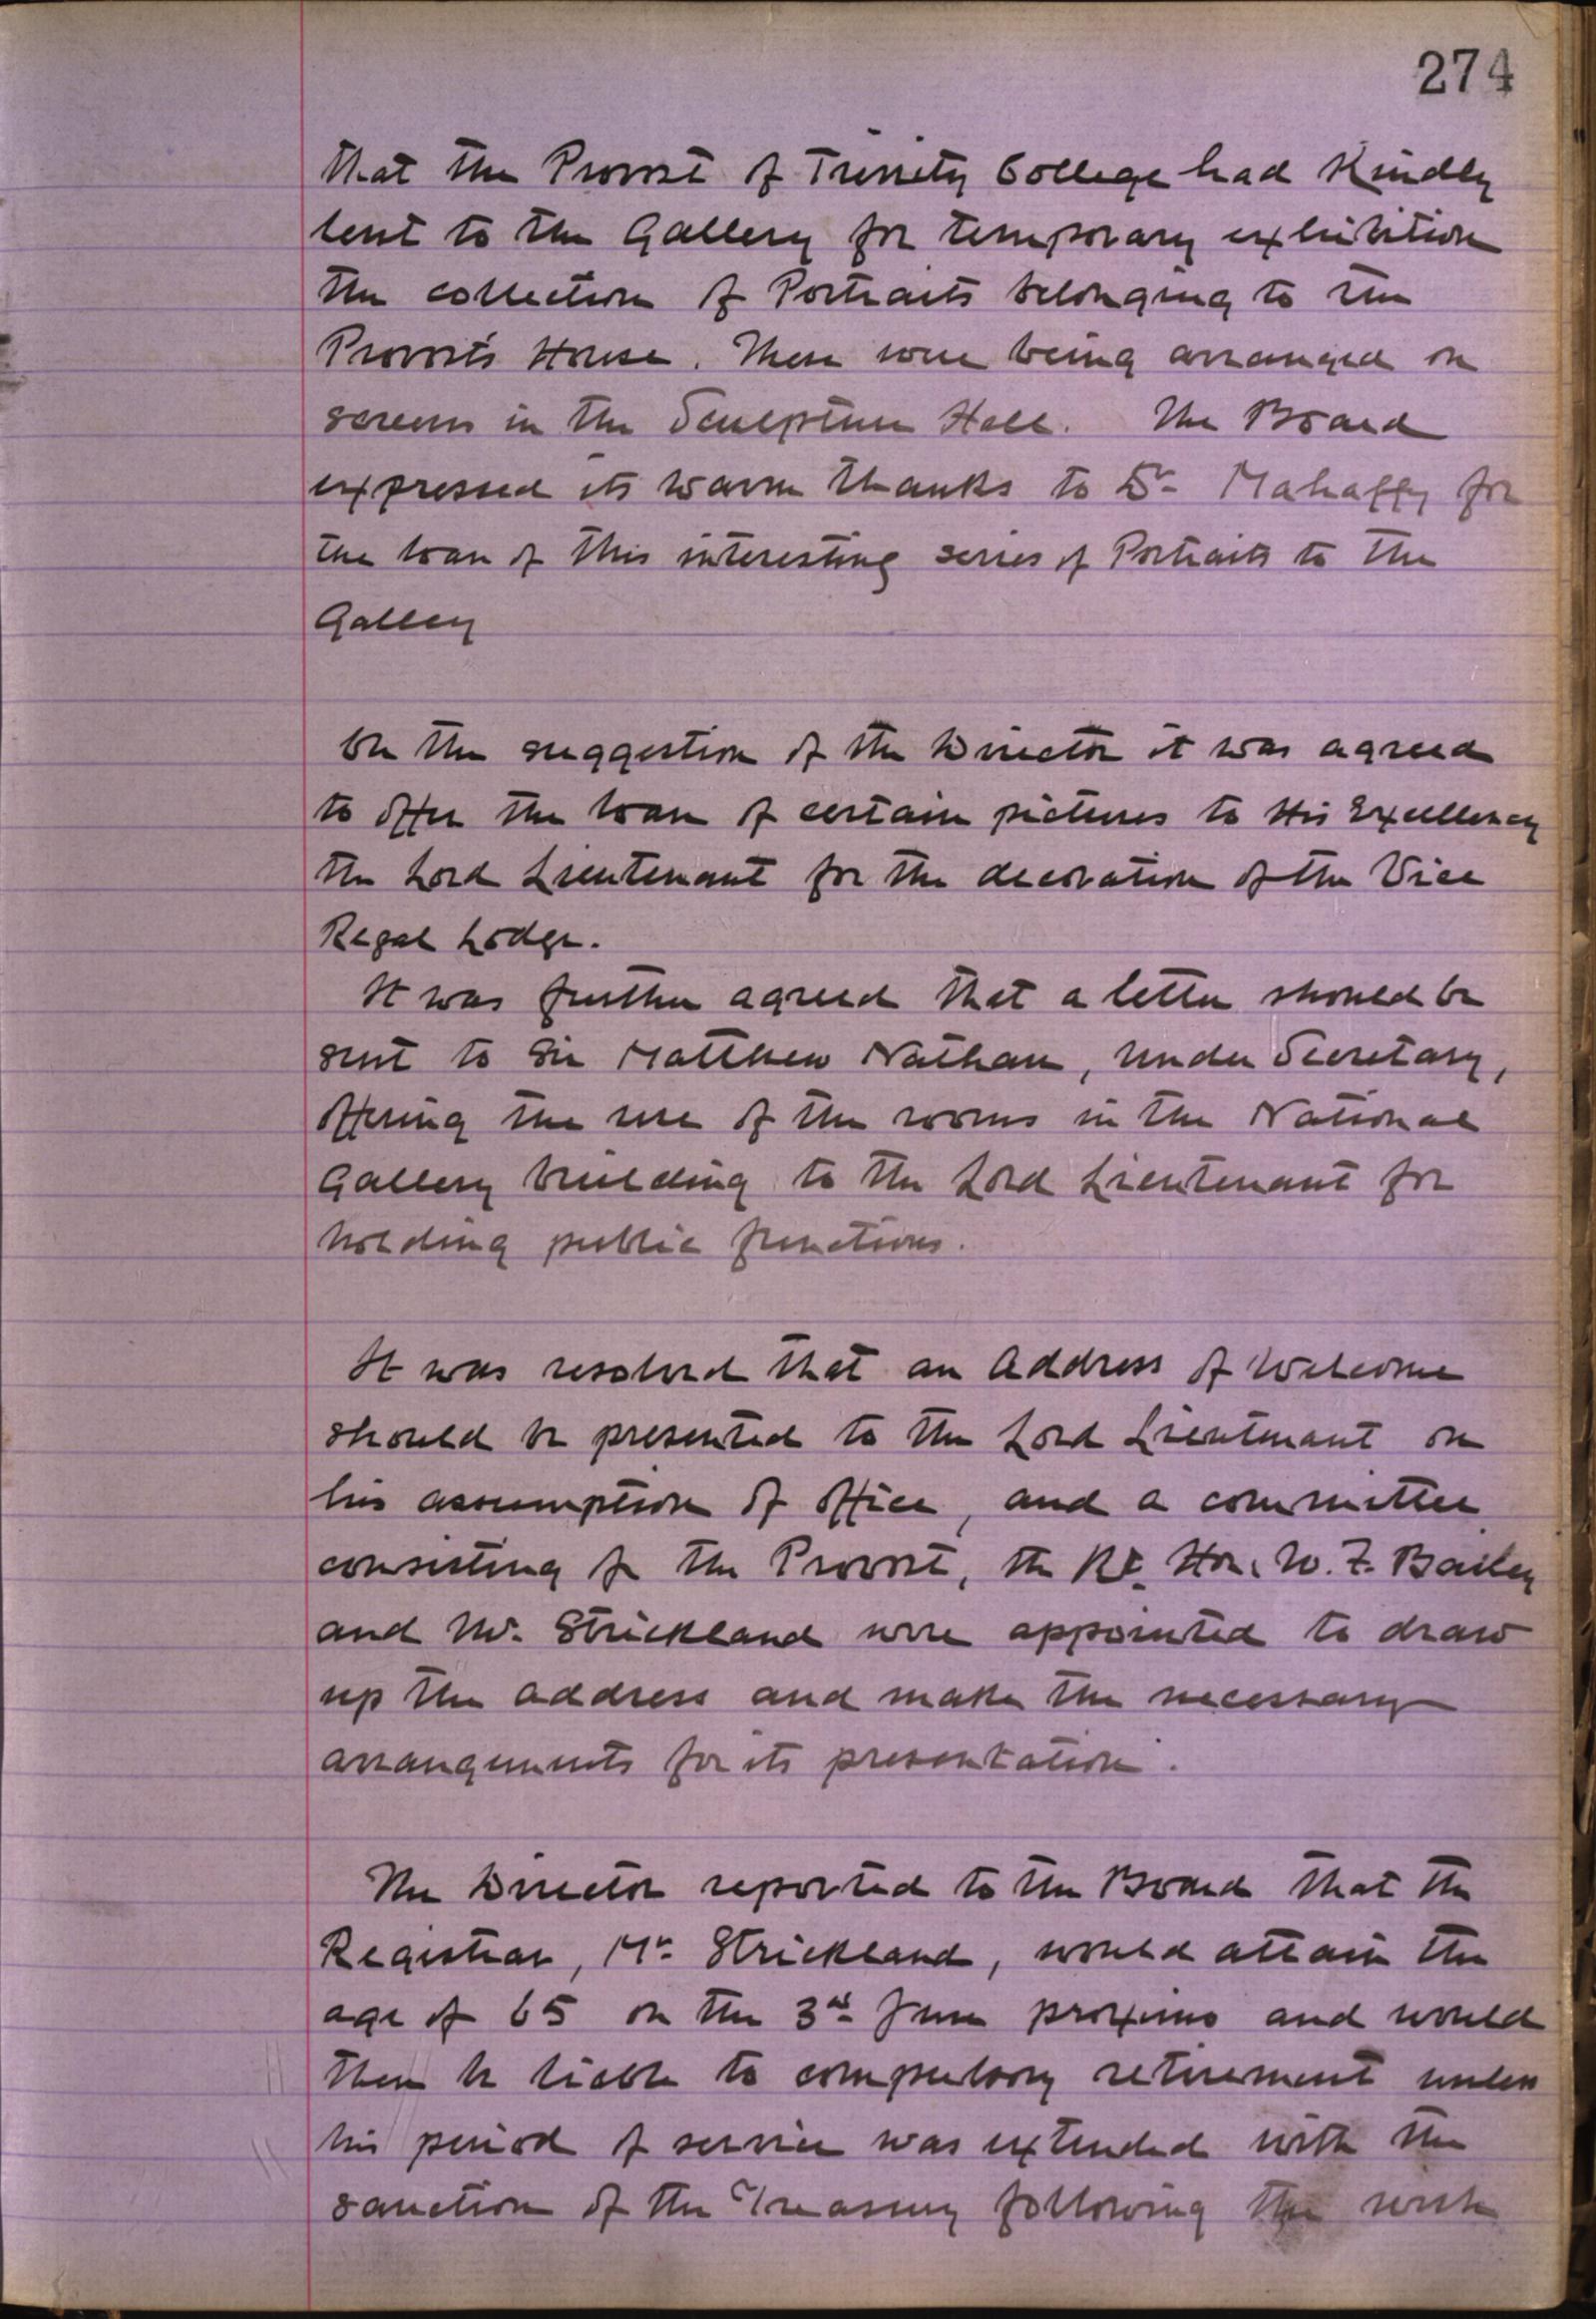 274
that the Provost of Trinity College had kindly
lent to the Gallery for temporary exhibition
the collection of Portraits belonging to the
Provost's House. These were being arranged on
screens in the Sculpture Hall. The Board
expressed its warm thanks to Dr. Mahaffy for
the loan of this interesting series of Portraits to the
Gallery
On the suggestion of the Director it was agreed
to offer the loan of certain pictures to His Excellency
the Lord Lieutenant for the decoration of the Vice
Regal Lodge.
It was further agreed that a letter should be
sent to Sir Matthew Nathan, Under Secretary,
offering the use of the rooms in the National
Gallery building to the Lord Lieutenant for
holding public functions.
It was resolved that an Address of Welcome
should be presented to the Lord Lieutenant on
his assumption of office, and a committee
consisting of the Provost, the Rt. Hon. W. F. Bailey
and Mr. Strickland were appointed to draw
up the address and make the necessary
arrangements for its presentation.
The Director reported to the Board that the
Registrar, Mr. Strickland, would attain the
age of 65 on the 3rd June proximo and would
then be liable to compulsory retirement unless
his period of service was extended with the
sanction of the Treasury following the wish